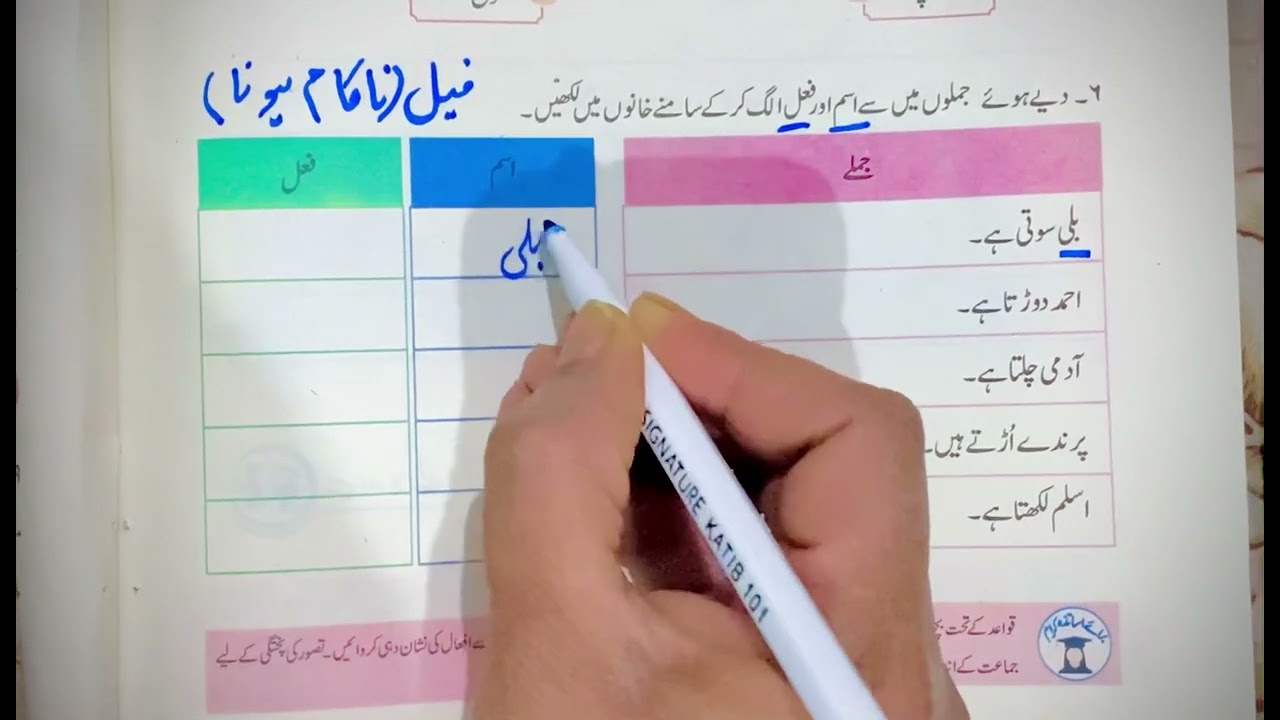 ۶۔ دیے ہوئے جملوں میں سے اسم اور فعل الگ کر کے سامنے خانوں میں لکھیں۔
فیل (ناکام ہونا)
جملے اسم فعل
بلی سوتی ہے۔ بلی
احمد دوڑتا ہے۔
آدمی چلتا ہے۔
پرندے اُڑتے ہیں۔
اسلم لکھتا ہے۔
SIGNATURE KATIB 101
برائے اساتذہ کرام
قواعد کے تحت سے افعال کی نشان دہی کروائیں۔ تصور کی پختگی کے لیے
جماعت کے